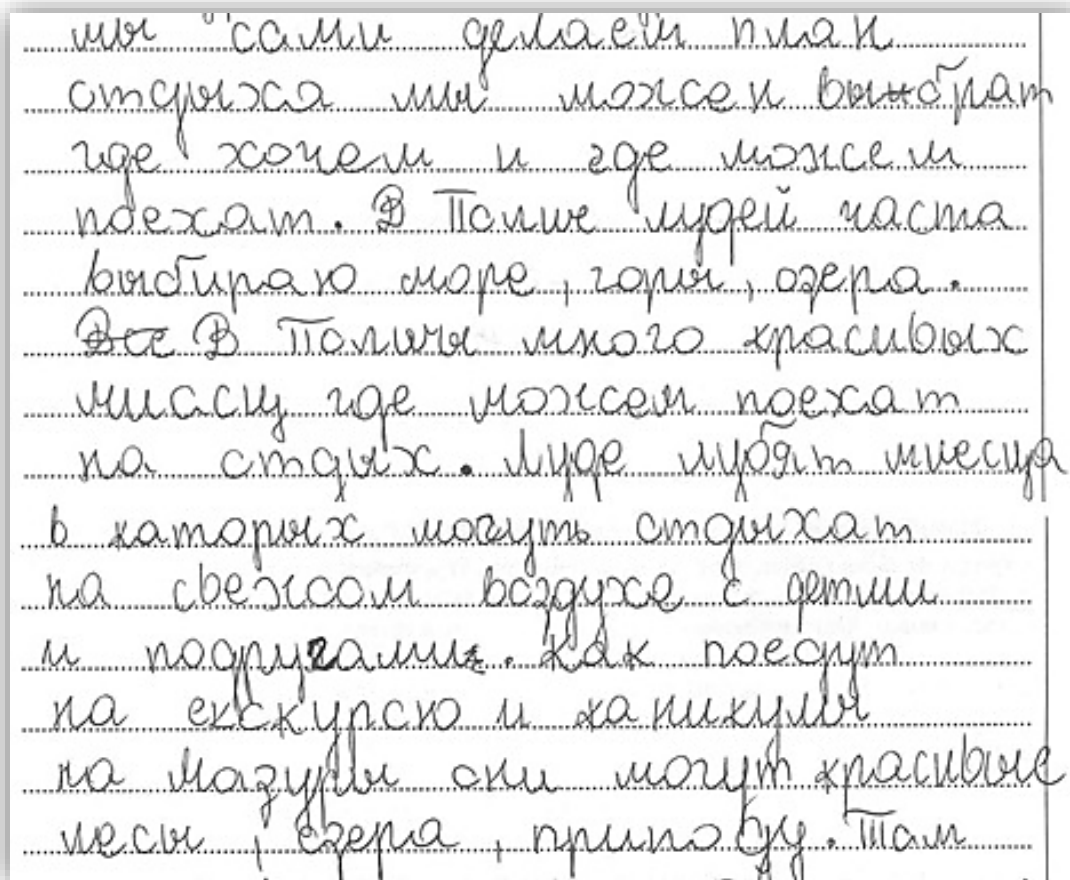 мы сами делаем план
отдыха мы можем выбрат
где хочем и где можем
поехат. В Полше лудей часта
выбираю море, горы, озера.
Все В Полшы много красивых
миссц где можем поехат
на отдых. Луде лубят миесца
в каторых могуть отдыхат
на свежом воздухе с детми
и подругами. Как поедут
на екскурсю и каникулы
на Мазуры они могут красивые
лесы, езера, природу. Там